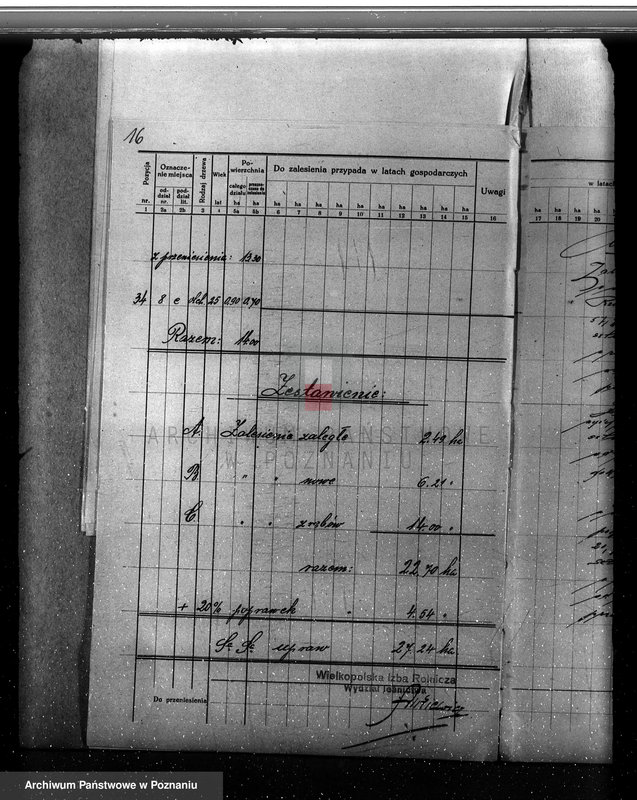 16
Pozycja nr. Oznaczenie miejsca oddział nr. poddział lit. Rodzaj drzewa Wiek lat Powierzchnia całego działu ha ha Do zalesienia przypada w latach gospodarczych Uwagi
ha ha ha ha ha ha ha ha ha ha
1 2a 2b 3 4 5a 5b 6 7 8 9 10 11 12 13 14 15 16
z przeniesienia: 13.30
34 8 c 25 0,90 0,70
Razem: 14.00
Zestawienie:
A. Zalesienie zaległe 2.49 ha
B. " " nowe 6.21 "
C. " " zrębów 14.00 "
razem: 22,70 ha
+ 20% poprawek " 4.54 "
Sa Sa upraw 27.24 ha
Wielkopolska Izba Rolnicza
Wydział leśnictwa
Do przeniesienia
w latach
ha ha ha ha
17 18 19 20
ARCHIWUM PAŃSTWOWE
W POZNANIU
Archiwum Państwowe w Poznaniu